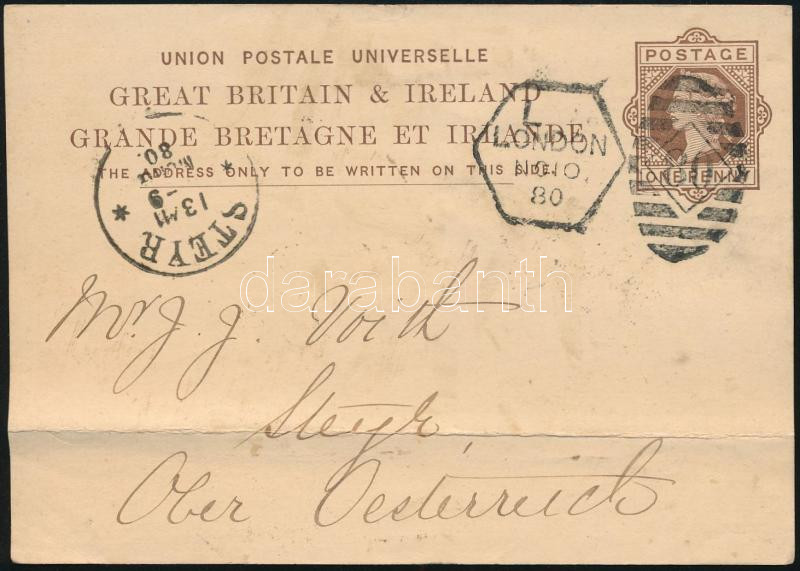 UNION POSTALE UNIVERSELLE
GREAT BRITAIN & IRELAND
GRANDE BRETAGNE ET IRLANDE
THE ADDRESS ONLY TO BE WRITTEN ON THIS SIDE.
POSTAGE
ONE PENNY
L
LONDON
NO 10
80
STEYR
13 11
80
darabanth
Mr J. J. Voith
Steyr
Ober Oesterreich